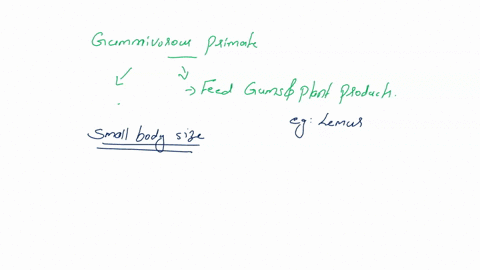 Gummivorous primate
→ Feed Gums & plant product.
eg: Lemur
Small body size